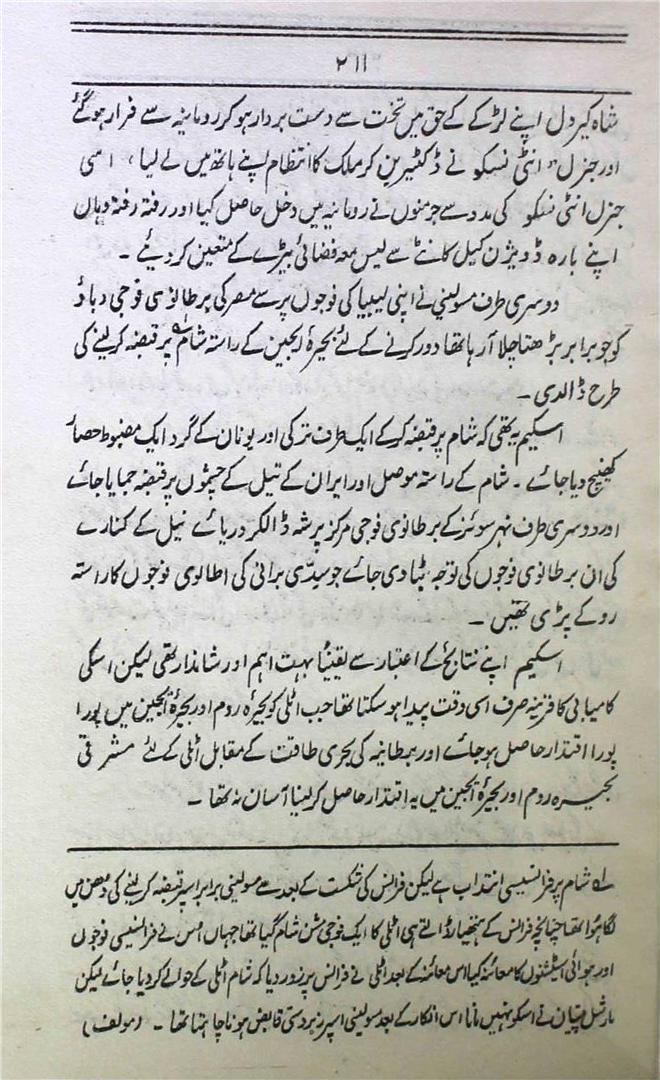 ۲۱۱
شاہ کیرول اپنے لڑکے کے حق میں تخت سے دست بردار ہو کر رومانیہ سے فرار ہو گئے
اور جنرل "انٹی نسکو نے ڈکٹیر بن کر ملک کا انتظام اپنے ہاتھ میں لے لیا، اسی
جنرل انٹی نسکو کی مدد سے جرمنوں نے رومانیہ میں دخل حاصل کیا اور رفتہ رفتہ وہاں
اپنے بارہ ڈویژن کیل کانٹے سے لیس معہ فضائی بیڑے کے متعین کر دیئے ۔
دوسری طرف مسولینی نے اپنی لیبیا کی فوجوں پر سے مصر کی برطانوی فوجی دباؤ
کو جو برابر بڑھتا چلا آ رہا تھا دور کرنے کے لئے بحیرۂ ایجین کے راستہ شام لہ پر قبضہ کر لینے کی
طرح ڈالدی ۔
اسکیم یہ تھی کہ شام پر قبضہ کر کے ایک طرف ترکی اور یونان کے گرد ایک مضبوط حصار
کھینچ دیا جائے ۔ شام کے راستہ موصل اور ایران کے تیل کے چشموں پر قبضہ جمایا جائے
اور دوسری طرف نہر سوئز کے برطانوی فوجی مرکز پر شہ ڈالکر دریائے نیل کے کنارے
کی ان برطانوی فوجوں کی توجہ ہٹا دی جائے جو سیدی برانی کی اطالوی فوجوں کا راستہ
روکے پڑی تھیں ۔
اسکیم اپنے نتائج کے اعتبار سے یقیناً بہت اہم اور شاندار تھی لیکن اسکی
کامیابی کا قرینہ صرف اسی وقت پیدا ہو سکتا تھا جب اٹلی کو بحیرۂ روم اور بحیرۂ ایجین میں پورا
پورا اقتدار حاصل ہو جائے اور برطانیہ کی بحری طاقت کے مقابل اٹلی کے لئے مشرقی
بحیرہ روم اور بحیرۂ ایجین میں یہ اقتدار حاصل کر لینا آسان نہ تھا ۔
لہ شام پر فرانسیسی انتداب ہے لیکن فرانس کی شکست کے بعد سے مسولینی برابر اسپر قبضہ کر لینے کی دھن میں
لگا ہوا تھا چنانچہ فرانس کے ہتھیار ڈالتے ہی اٹلی کا ایک فوجی مشن شام گیا تھا جہاں اس نے فرانسیسی فوجوں
اور ہوائی اسٹیشنوں کا معائنہ کیا اس معائنہ کے بعد اٹلی نے فرانس پر زور دیا کہ شام اٹلی کے حوالے کر دیا جائے لیکن
مارشل پتیان نے اسکو نہیں مانا اس انکار کے بعد مسولینی اسپر زبردستی قابض ہونا چاہتا تھا ۔ (مولف)